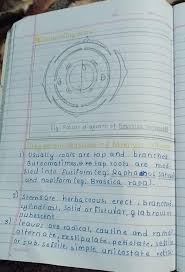 Fig. Floral diagram of Brassica
1) Usually roots are tap and branched.
But sometimes, tap roots are modi-
fied into fusiform (eg. Raphanus sativus)
and napiform (eg. Brassica rapa).
2) Stems are herbaceous, erect, branched,
cylindrical, solid or fistular, glabrous
pubescent
3) Leaves are radical, cauline and ramal
alternate, exstipulate, petiolate, sessile
or sub-sessile, simple, unicostate